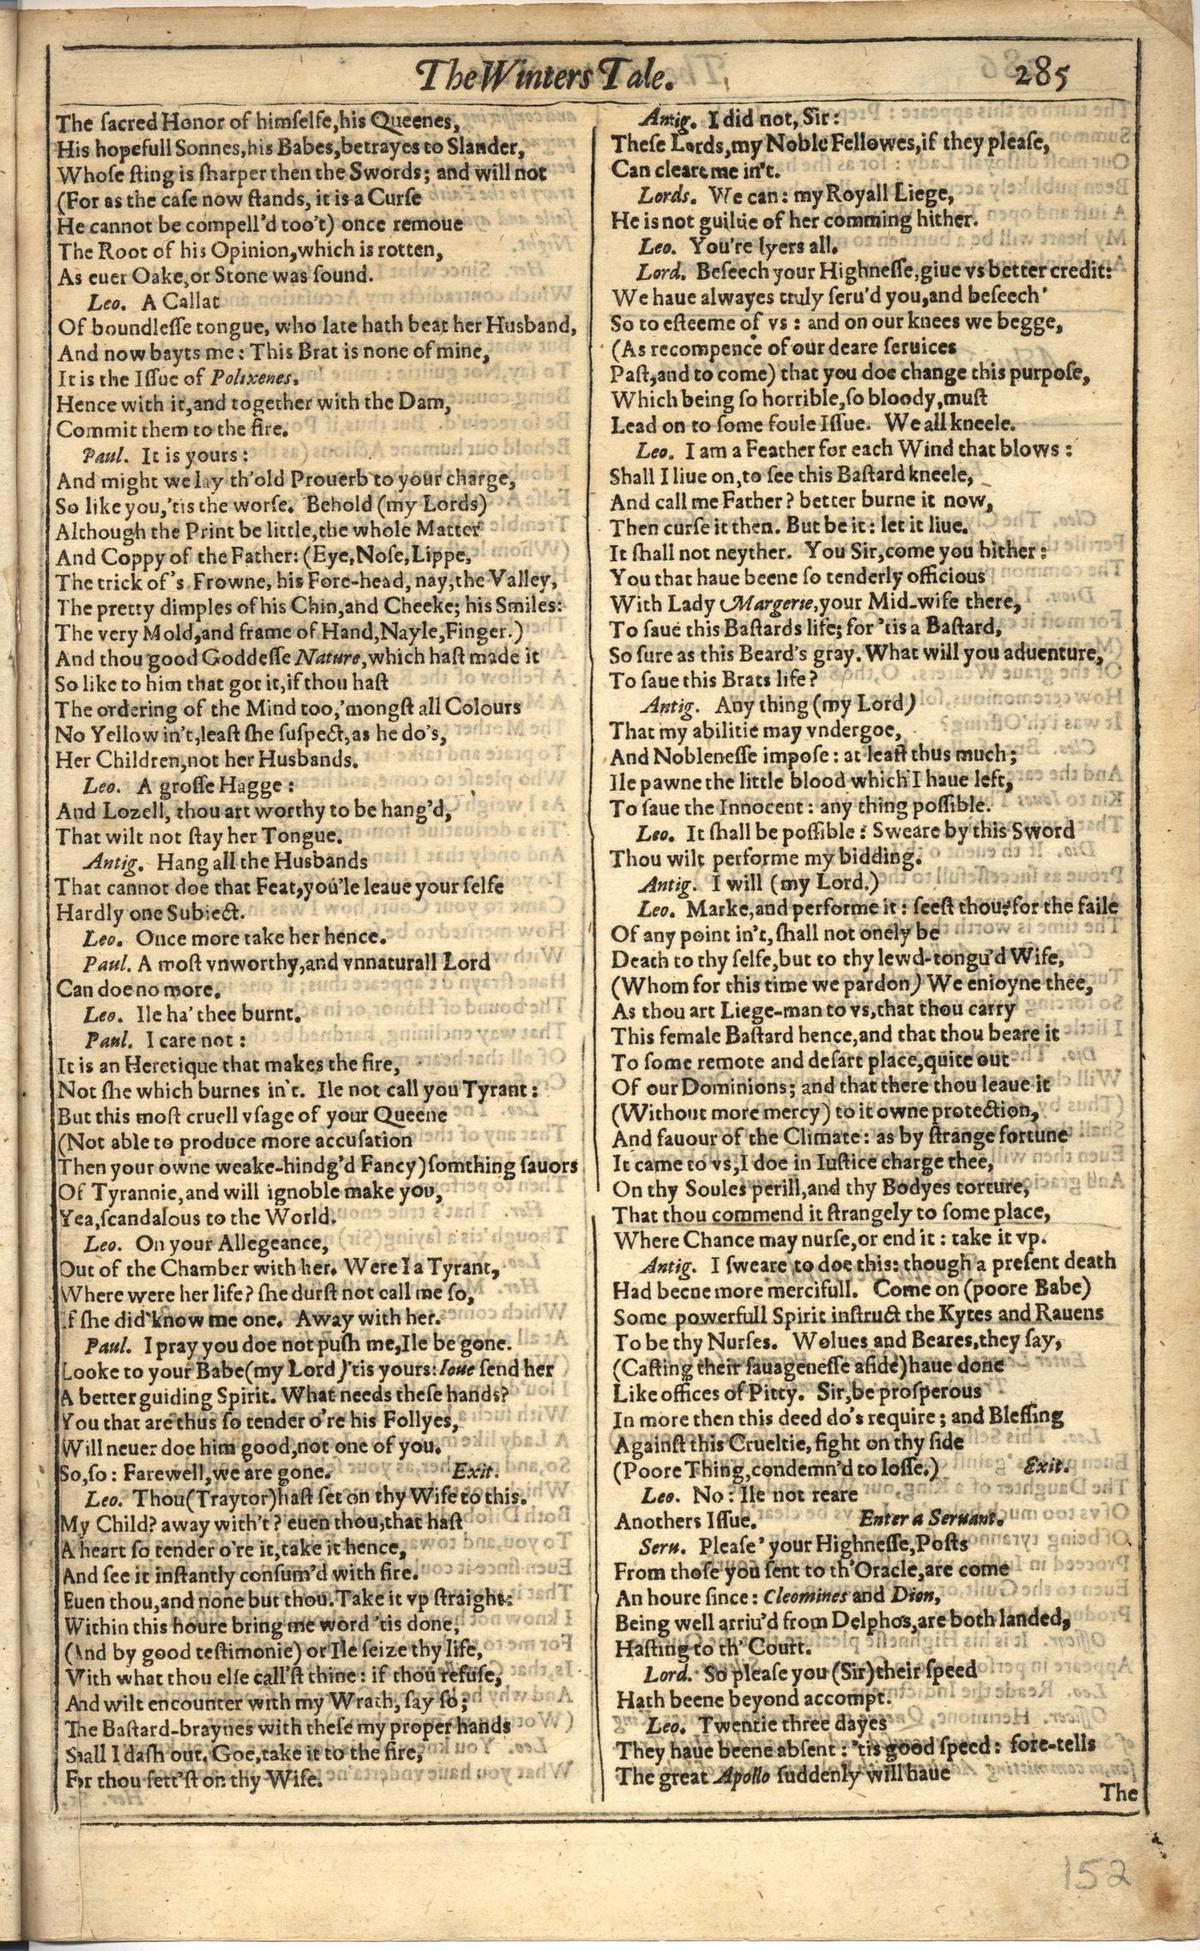 The Winters Tale. 285
The sacred Honor of himselfe,his Queenes,
His hopefull Sonnes,his Babes,betrayes to Slander,
Whose sting is sharper then the Swords; and will not
(For as the case now stands, it is a Curse
He cannot be compell'd too't) once remoue
The Root of his Opinion,which is rotten,
As euer Oake,or Stone was sound.
Leo. A Callat
Of boundlesse tongue, who late hath beat her Husband,
And now bayts me: This Brat is none of mine,
It is the Issue of Polixenes.
Hence with it,and together with the Dam,
Commit them to the fire.
Paul. It is yours:
And might we lay th'old Prouerb to your charge,
So like you,'tis the worse. Behold (my Lords)
Although the Print be little,the whole Matter
And Coppy of the Father: (Eye,Nose,Lippe,
The trick of's Frowne, his Fore-head, nay,the Valley,
The pretty dimples of his Chin,and Cheeke; his Smiles:
The very Mold,and frame of Hand,Nayle,Finger.)
And thou good Goddesse Nature,which hast made it
So like to him that got it,if thou hast
The ordering of the Mind too,'mongst all Colours
No Yellow in't,least she suspect,as he do's,
Her Children,not her Husbands.
Leo. A grosse Hagge:
And Lozell, thou art worthy to be hang'd,
That wilt not stay her Tongue.
Antig. Hang all the Husbands
That cannot doe that Feat,you'le leaue your selfe
Hardly one Subiect.
Leo. Once more take her hence.
Paul. A most vnworthy,and vnnaturall Lord
Can doe no more.
Leo. Ile ha' thee burnt.
Paul. I care not:
It is an Heretique that makes the fire,
Not she which burnes in't. Ile not call you Tyrant:
But this most cruell vsage of your Queene
(Not able to produce more accusation
Then your owne weake-hindg'd Fancy)somthing sauors
Of Tyrannie,and will ignoble make you,
Yea,scandalous to the World.
Leo. On your Allegeance,
Out of the Chamber with her. Were I a Tyrant,
Where were her life? she durst not call me so,
If she did know me one. Away with her.
Paul. I pray you doe not push me,Ile be gone.
Looke to your Babe(my Lord)'tis yours:Ioue send her
A better guiding Spirit. What needs these hands?
You that are thus so tender o're his Follyes,
Will neuer doe him good,not one of you.
So,so: Farewell,we are gone. Exit.
Leo. Thou(Traytor)hast set on thy Wife to this.
My Child? away with't? euen thou,that hast
A heart so tender o're it,take it hence,
And see it instantly consum'd with fire.
Euen thou,and none but thou.Take it vp straight:
Within this houre bring me word 'tis done,
(And by good testimonie) or Ile seize thy life,
With what thou else call'st thine: if thou refuse,
And wilt encounter with my Wrath, say so;
The Bastard-braynes with these my proper hands
Shall I dash out. Goe,take it to the fire,
For thou sett'st on thy Wife.
Antig. I did not, Sir:
These Lords,my Noble Fellowes,if they please,
Can cleare me in't.
Lords. We can: my Royall Liege,
He is not guiltie of her comming hither.
Leo. You're lyers all.
Lord. Beseech your Highnesse,giue vs better credit:
We haue alwayes truly seru'd you,and beseech'
So to esteeme of vs: and on our knees we begge,
(As recompence of our deare seruices
Past,and to come) that you doe change this purpose,
Which being so horrible,so bloody,must
Lead on to some foule Issue. We all kneele.
Leo. I am a Feather for each Wind that blows:
Shall I liue on,to see this Bastard kneele,
And call me Father? better burne it now,
Then curse it then. But be it: let it liue.
It shall not neyther. You Sir,come you hither:
You that haue beene so tenderly officious
With Lady Margerie,your Mid-wife there,
To saue this Bastards life; for 'tis a Bastard,
So sure as this Beard's gray. What will you aduenture,
To saue this Brats life?
Antig. Any thing (my Lord)
That my abilitie may vndergoe,
And Noblenesse impose: at least thus much;
Ile pawne the little blood which I haue left,
To saue the Innocent: any thing possible.
Leo. It shall be possible: Sweare by this Sword
Thou wilt performe my bidding.
Antig. I will (my Lord.)
Leo. Marke,and performe it: seest thou? for the faile
Of any point in't, shall not onely be
Death to thy selfe,but to thy lewd-tongu'd Wife,
(Whom for this time we pardon) We enioyne thee,
As thou art Liege-man to vs,that thou carry
This female Bastard hence,and that thou beare it
To some remote and desart place,quite out
Of our Dominions; and that there thou leaue it
(Without more mercy) to it owne protection,
And fauour of the Climate: as by strange fortune
It came to vs,I doe in Iustice charge thee,
On thy Soules perill,and thy Bodyes torture,
That thou commend it strangely to some place,
Where Chance may nurse,or end it: take it vp.
Antig. I sweare to doe this: though a present death
Had beene more mercifull. Come on (poore Babe)
Some powerfull Spirit instruct the Kytes and Rauens
To be thy Nurses. Wolues and Beares,they say,
(Casting their sauagenesse aside)haue done
Like offices of Pitty. Sir,be prosperous
In more then this deed do's require; and Blessing
Against this Crueltie, fight on thy side
(Poore Thing,condemn'd to losse.) Exit.
Leo. No: Ile not reare
Anothers Issue. Enter a Seruant.
Seru. Please' your Highnesse,Posts
From those you sent to th'Oracle,are come
An houre since: Cleomines and Dion,
Being well arriu'd from Delphos,are both landed,
Hasting to th' Court.
Lord. So please you (Sir)their speed
Hath beene beyond accompt.
Leo. Twentie three dayes
They haue beene absent: 'tis good speed: fore-tells
The great Apollo suddenly will haue
The
152